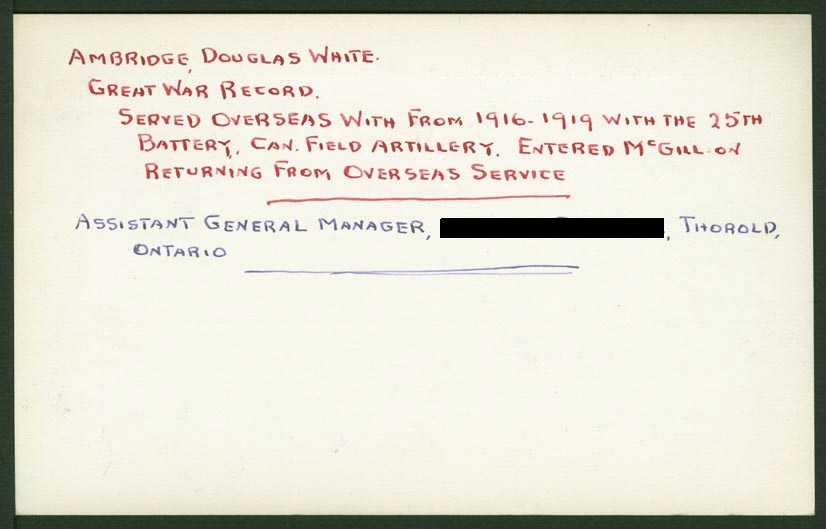 AMBRIDGE, DOUGLAS WHITE.
GREAT WAR RECORD.
SERVED OVERSEAS WITH FROM 1916-1919 WITH THE 25TH
BATTERY, CAN. FIELD ARTILLERY. ENTERED McGILL ON
RETURNING FROM OVERSEAS SERVICE
ASSISTANT GENERAL MANAGER, , THOROLD,
ONTARIO